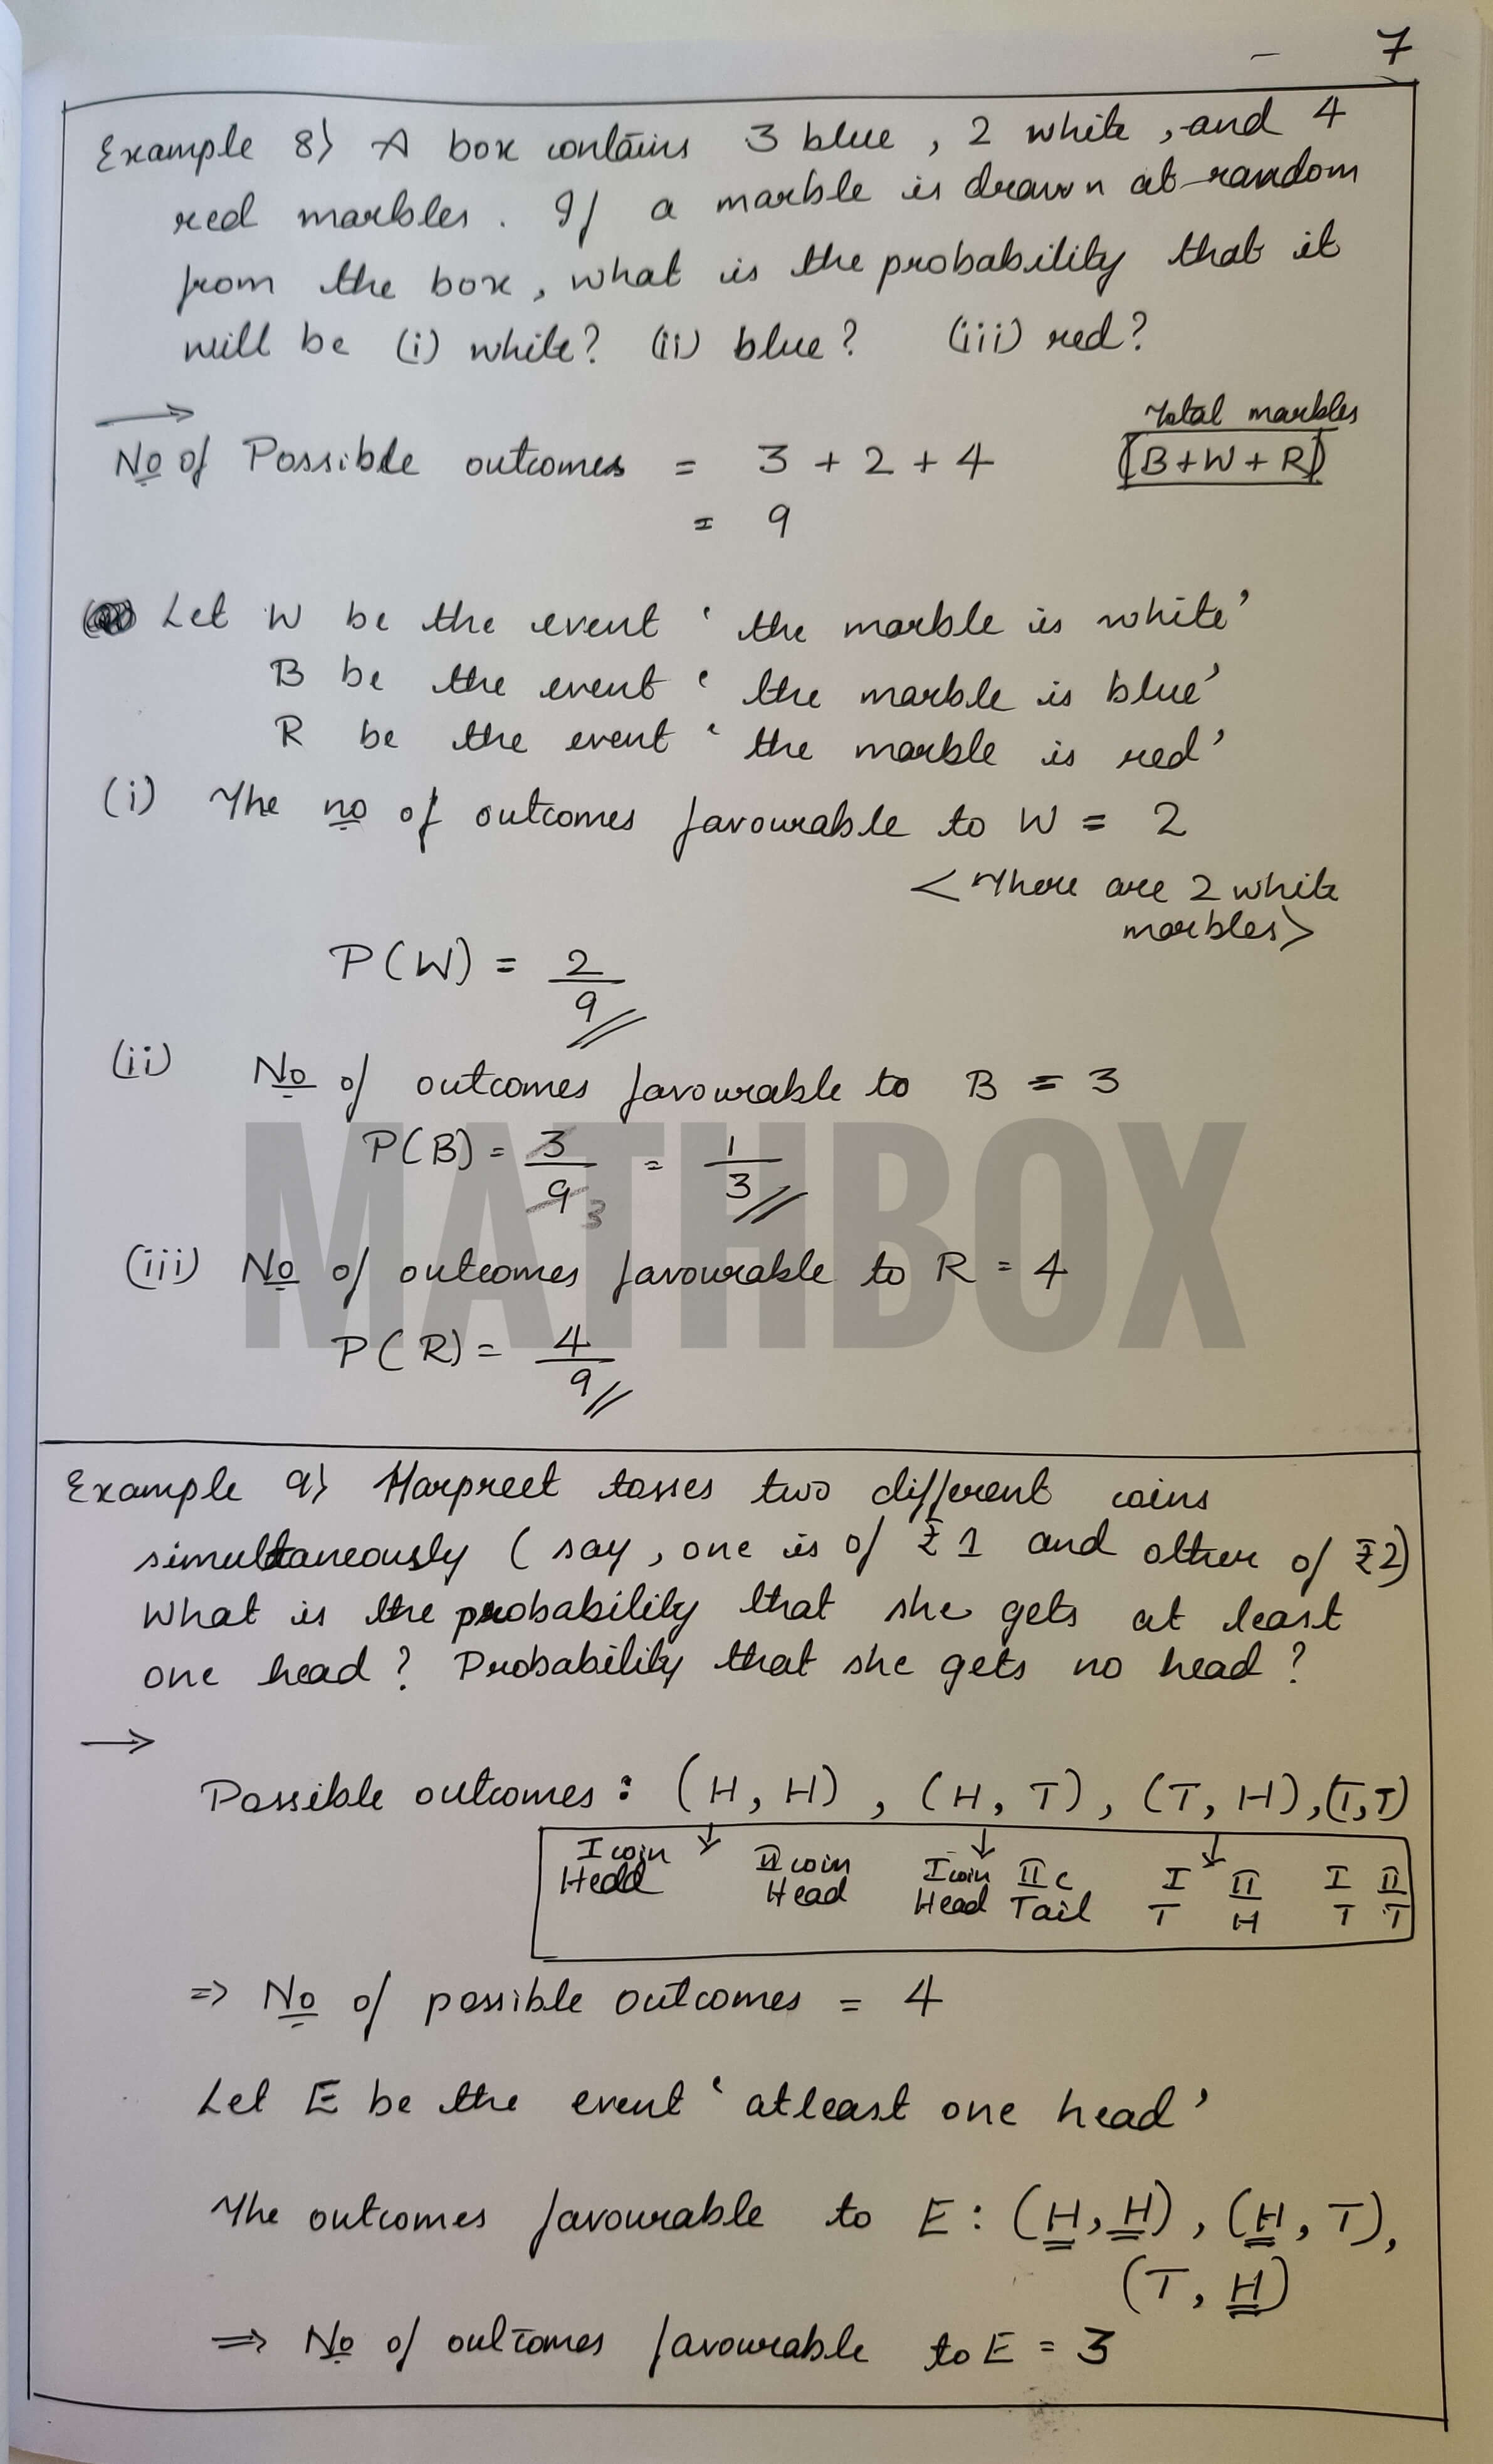 7
Example 8) A box contains 3 blue, 2 white, and 4
red marbles. If a marble is drawn at random
from the box, what is the probability that it
will be (i) white? (ii) blue? (iii) red?
Total marbles
No of Possible outcomes = 3 + 2 + 4 (B+W+R)
= 9
Let W be the event 'the marble is white'
B be the event 'the marble is blue'
R be the event 'the marble is red'
(i) The no of outcomes favourable to W = 2
<There are 2 white
marbles>
P(W) = 2/9
(ii) No of outcomes favourable to B = 3
P(B) = 3/9 3 = 1/3
(iii) No of outcomes favourable to R = 4
P(R) = 4/9
MATHBOX
Example 9) Harpreet tosses two different coins
simultaneously (say, one is of ₹1 and other of ₹2)
What is the probability that she gets at least
one head? Probability that she gets no head?
→
Possible outcomes: (H, H), (H, T), (T, H), (T, T)
I coin II coin I coin II c I II I II
Head Head Head Tail T H T T
⇒ No of possible outcomes = 4
Let E be the event 'atleast one head'
The outcomes favourable to E: (H, H), (H, T),
(T, H)
⇒ No of outcomes favourable to E = 3